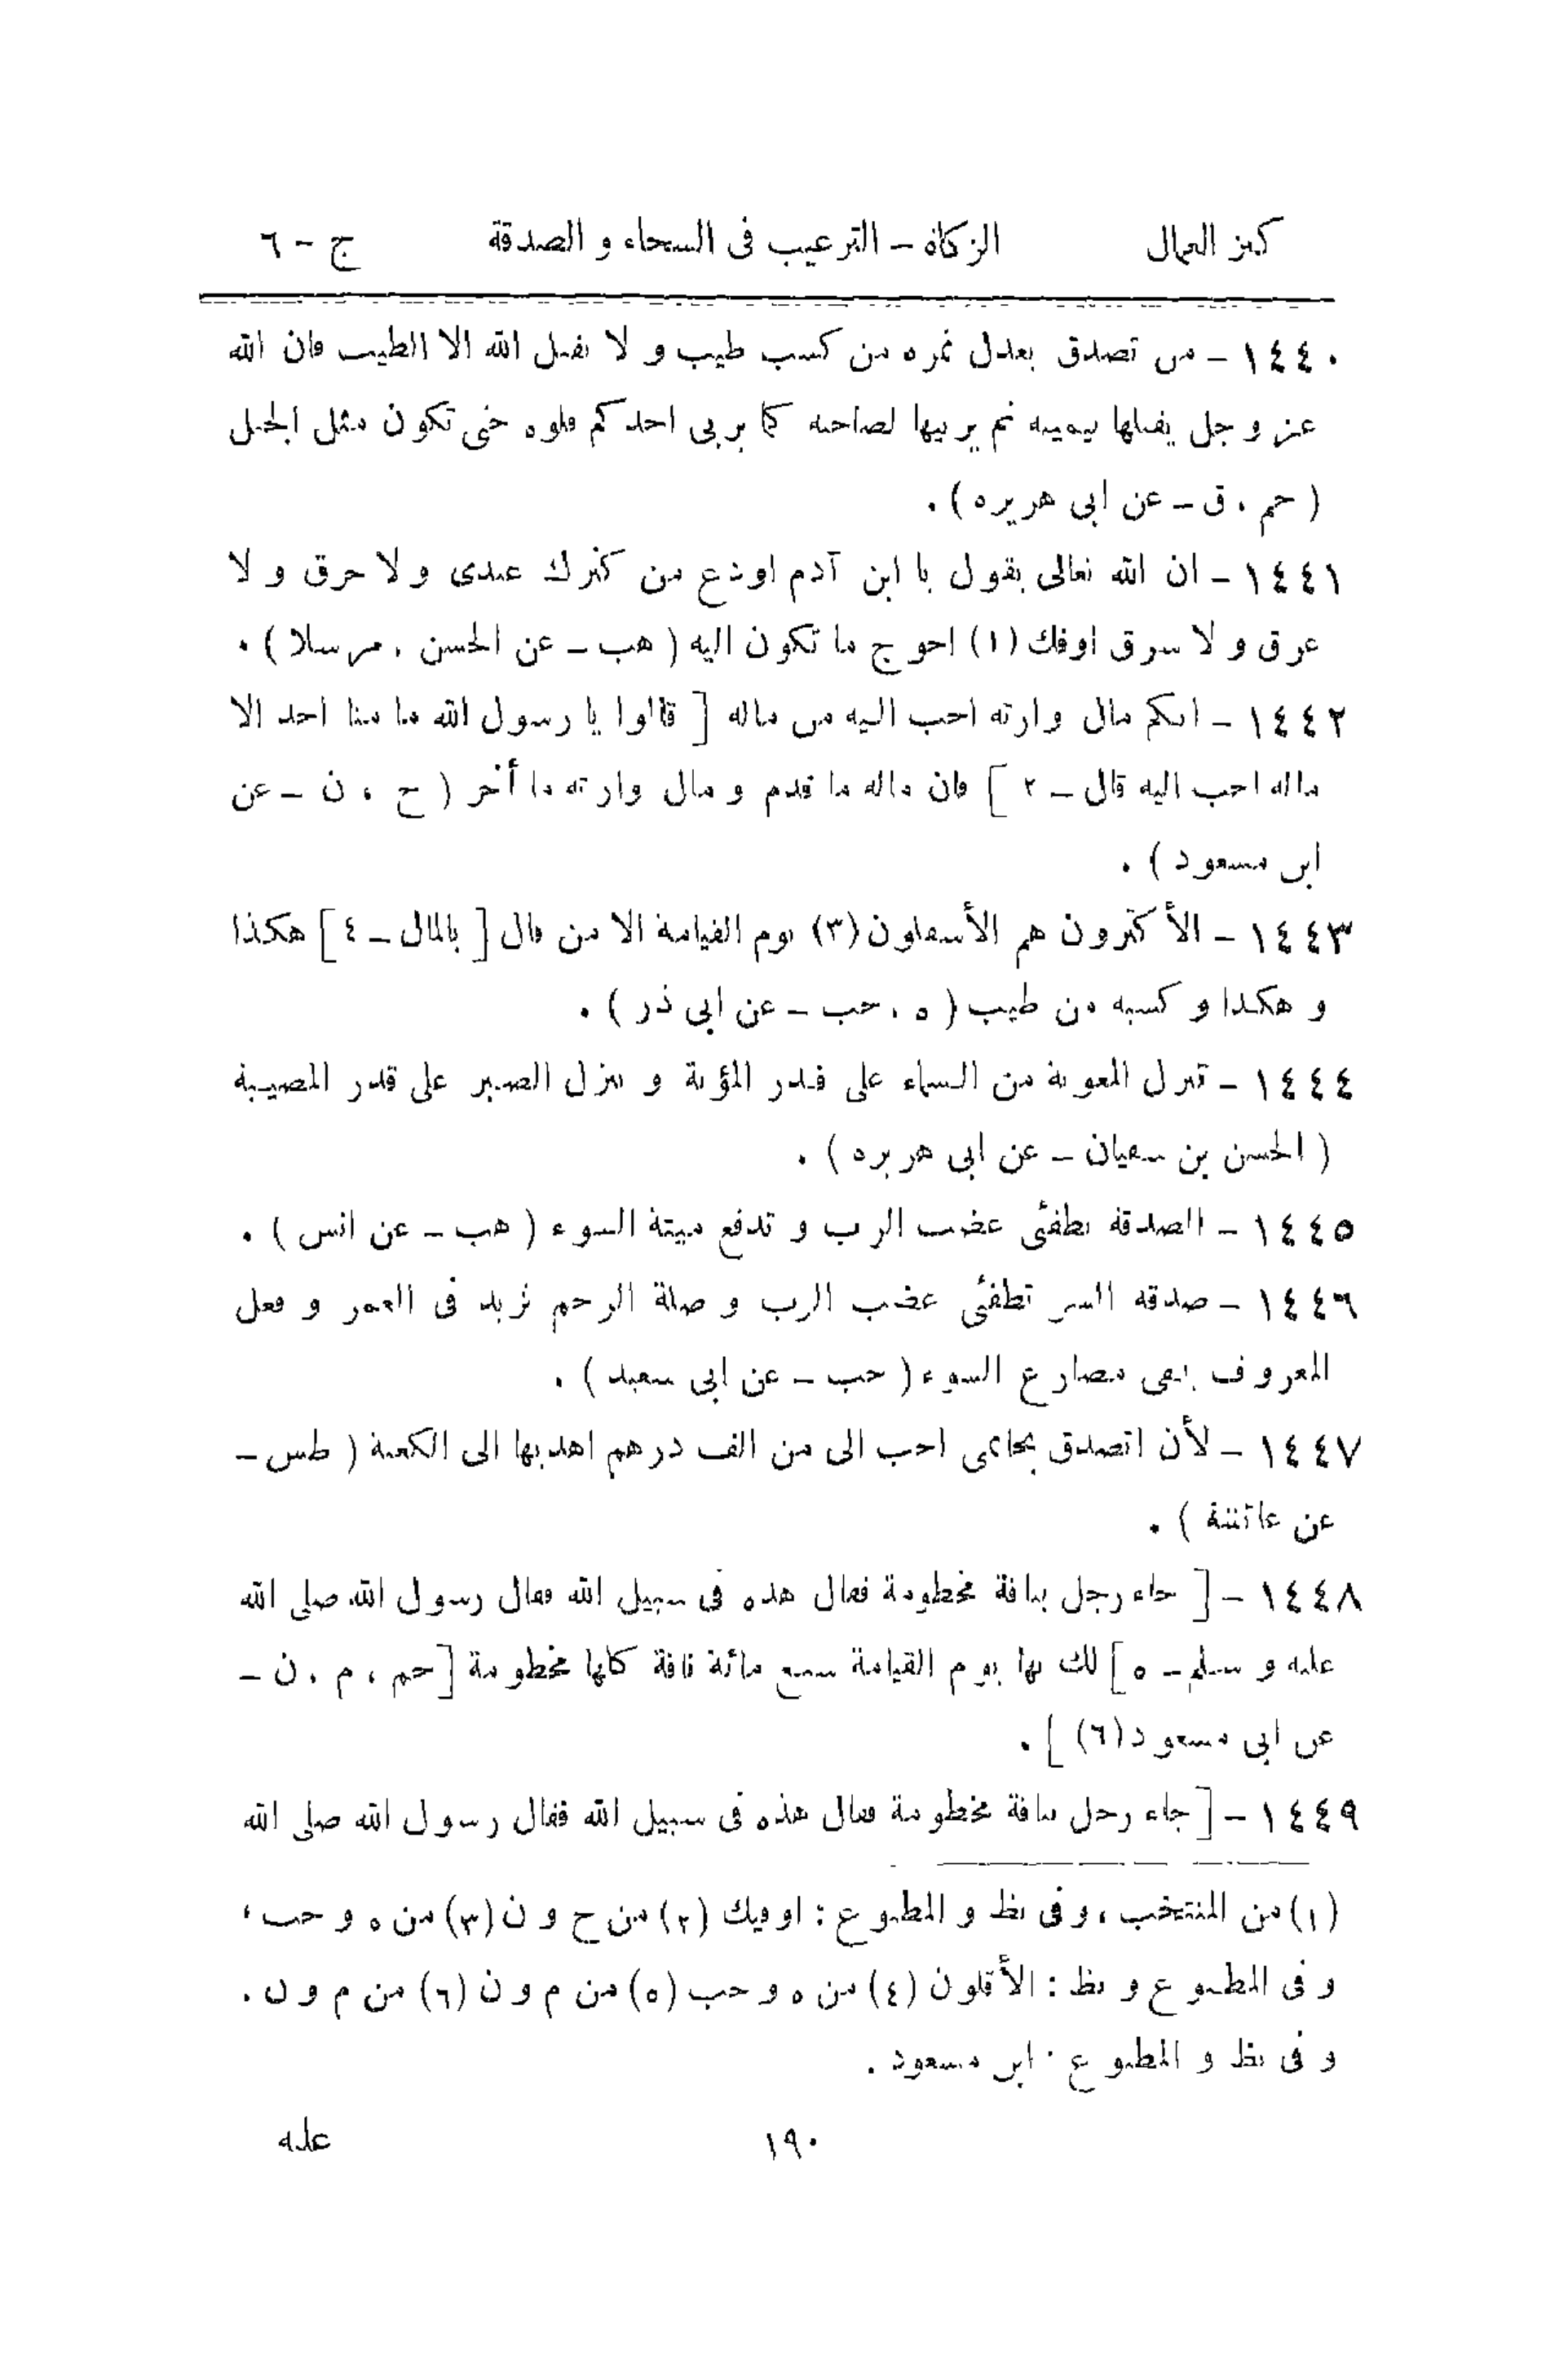 كنز العمال الزكاة – الترغيب فى السخاء و الصدقة ج – ٦
١٤٤٠ – من تصدق بعدل تمرة من كسب طيب و لا يقبل الله الا الطيب فان الله
عز و جل يقبلها بيمينه ثم يربيها لصاحبه كما يربى احدكم فلوه حتى تكون مثل الجبل
( حم ، ق – عن ابى هريرة ) .
١٤٤١ – ان الله تعالى يقول يا ابن آدم اودع من كنزك عندى و لا حرق و لا
غرق و لا سرق اوفك (١) احوج ما تكون اليه ( هب – عن الحسن ، مرسلا ) .
١٤٤٢ – ايكم مال وارثه احب اليه من ماله [ قالوا يا رسول الله ما منا احد الا
ماله احب اليه قال – ٢ ] فان ماله ما قدم و مال وارثه ما أخر ( خ ، ن – عن
ابن مسعود ) .
١٤٤٣ – الأكثرون هم الأسفلون (٣) يوم القيامة الا من قال [ بالمال – ٤ ] هكذا
و هكذا و كسبه من طيب ( ه ، حب – عن ابى ذر ) .
١٤٤٤ – تنزل المعونة من السماء على قدر المؤنة و ينزل الصبر على قدر المصيبة
( الحسن بن سفيان – عن ابى هريرة ) .
١٤٤٥ – الصدقة تطفئ غضب الرب و تدفع ميتة السوء ( هب – عن انس ) .
١٤٤٦ – صدقة السر تطفئ غضب الرب و صلة الرحم تزيد فى العمر و فعل
المعروف يقى مصارع السوء ( حب – عن ابى سعيد ) .
١٤٤٧ – لأن اتصدق بخاتمى احب الى من الف درهم اهديها الى الكعبة ( طس –
عن عائشة ) .
١٤٤٨ – [ جاء رجل بناقة مخطومة فقال هذه فى سبيل الله فقال رسول الله صلى الله
عليه و سلم – ٥ ] لك بها يوم القيامة سبع مائة ناقة كلها مخطومة [ حم ، م ، ن –
عن ابى مسعود (٦) ] .
١٤٤٩ – [ جاء رجل بناقة مخطومة فقال هذه فى سبيل الله فقال رسول الله صلى الله
(١) من المنتخب ، و فى نظ و المطبوع : اوفيك (٢) من خ و ن (٣) من ه و حب ،
و فى المطبوع و نظ : الأقلون (٤) من ه و حب (٥) من م و ن (٦) من م و ن .
و فى نظ و المطبوع : ابن مسعود .
١٩٠ عليه